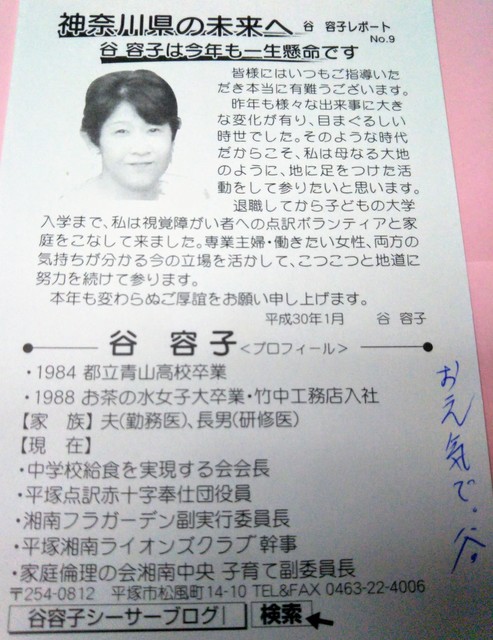 神奈川県の未来へ 谷 容子レポート No.9
谷 容子は今年も一生懸命です
皆様にはいつもご指導いた
だき本当に有難うございます。
昨年も様々な出来事に大き
な変化が有り、目まぐるしい
時世でした。そのような時代
だからこそ、私は母なる大地
のように、地に足をつけた活
動をして参りたいと思います。
退職してから子どもの大学
入学まで、私は視覚障がい者への点訳ボランティアと家
庭をこなして来ました。専業主婦・働きたい女性、両方の
気持ちが分かる今の立場を活かして、こつこつと地道に
努力を続けて参ります。
本年も変わらぬご厚誼をお願い申し上げます。
平成30年1月 谷 容子
谷 容子<プロフィール>
・1984 都立青山高校卒業
・1988 お茶の水女子大卒業・竹中工務店入社
【家 族】夫(勤務医)、長男(研修医)
【現 在】
・中学校給食を実現する会会長
・平塚点訳赤十字奉仕団役員
・湘南フラガーデン副実行委員長
・平塚湘南ライオンズクラブ幹事
・家庭倫理の会湘南中央 子育て副委員長
〒254-0812 平塚市松風町14-10 TEL&FAX 0463-22-4006
谷容子シーサーブログ 検索
お元気で。谷。